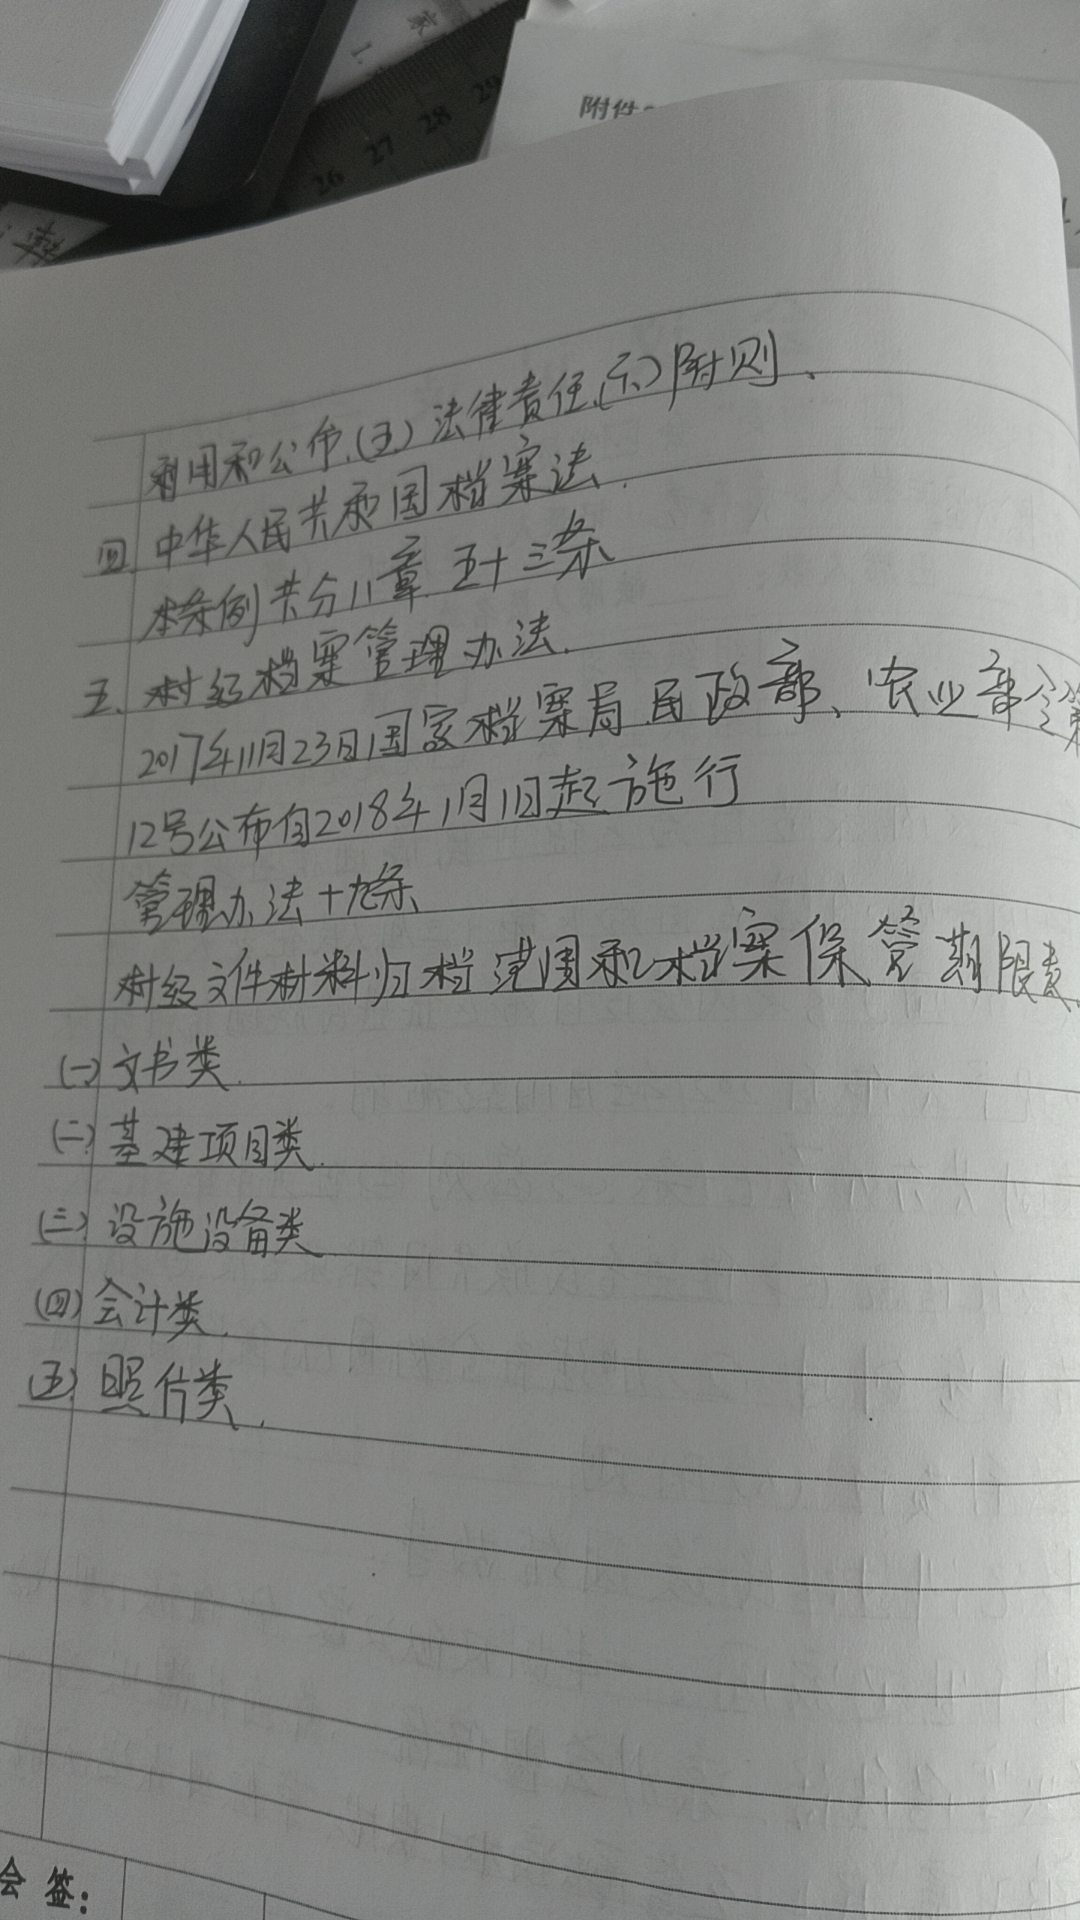 家
1.
26 27 28 29
附件
利用和公布.(五)法律责任.(六)附则.
四.中华人民共和国档案法.
本条例共分八章.五十三条
五.村级档案管理办法.
2017年11月23日国家档案局民政部、农业部令第
12号公布自2018年1月1日起施行
管理办法十九条
村级文件材料归档范围和档案保管期限表.
(一)文书类.
(二)基建项目类.
(三)设施设备类
(四)会计类.
(五)照片类.
会 签: